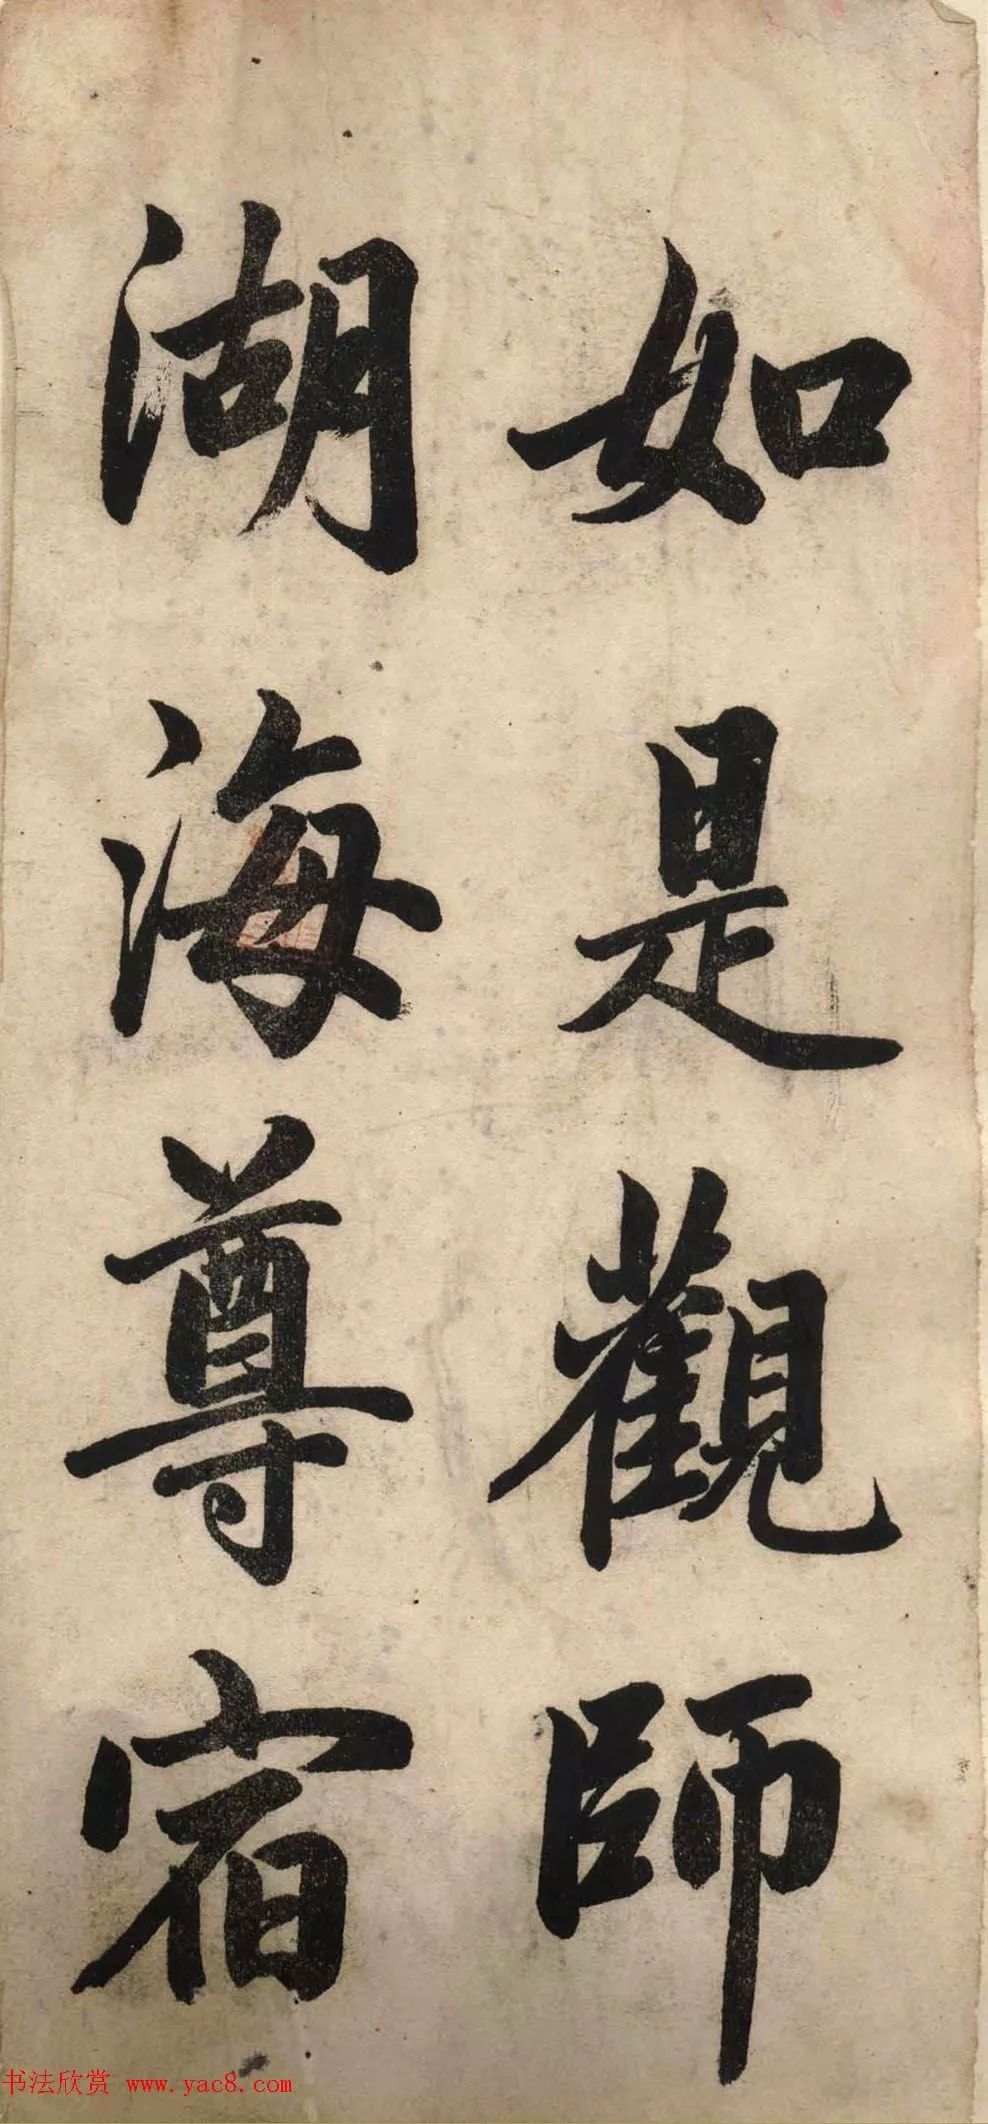 如是觀師
湖海尊宿
书法欣赏 www.yac8.com